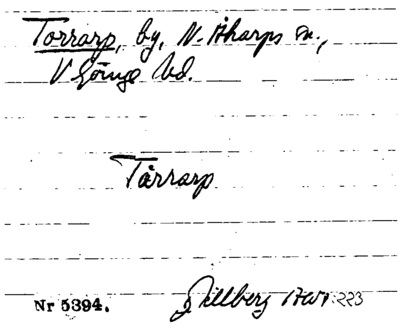 Torrarp, by, N. Åkarps sn.,
V Göinge hd.
Tårrarp
Nr 5394.
Gillberg 223